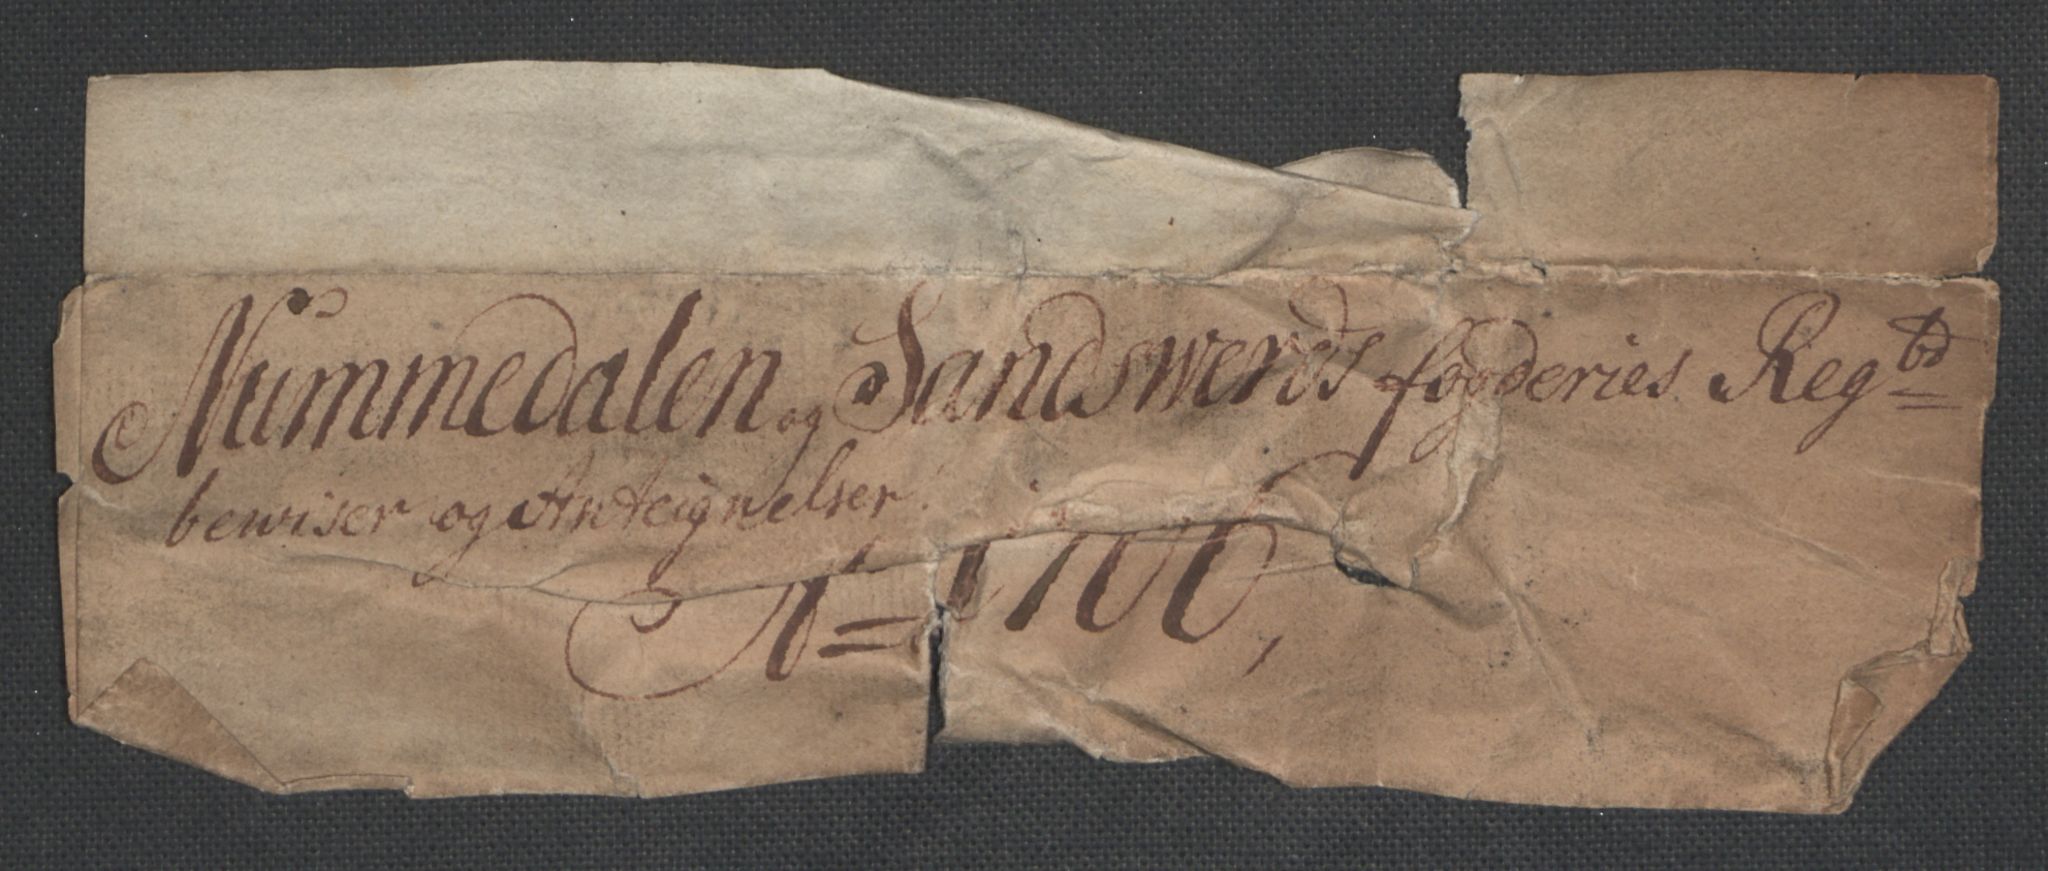 Nummedalen og Sandswerds fogderies Reg:bs
bewiser og Anteignelser
A= 1706,